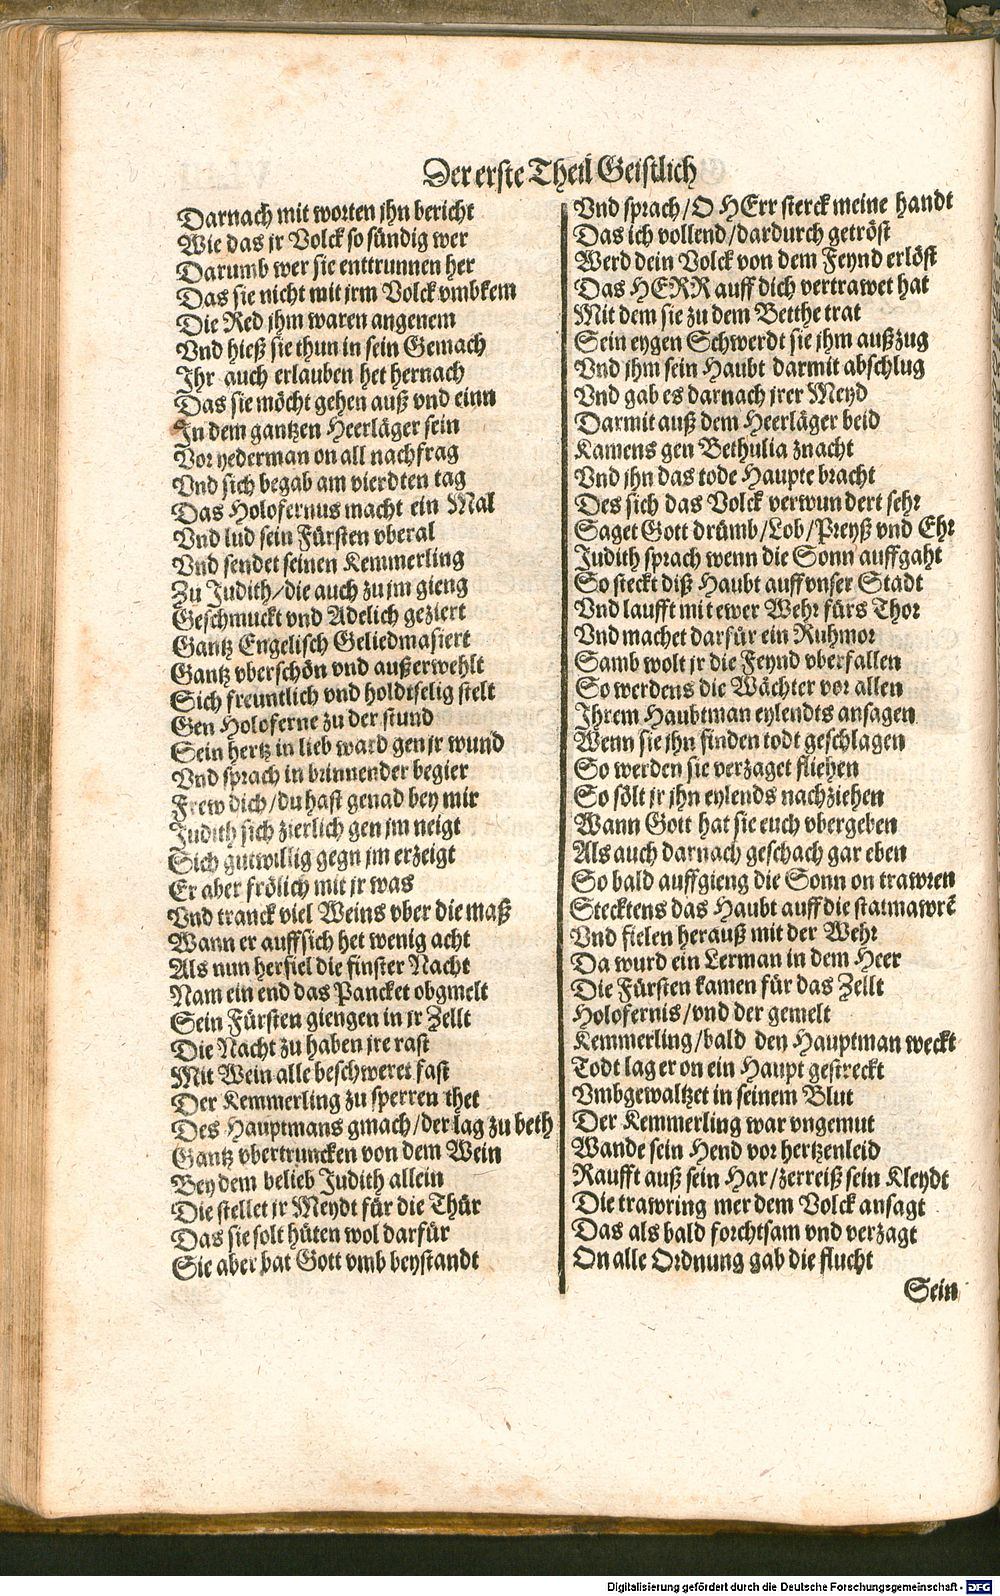 Der erste Theil Geistlich
Darnach mit worten jhn bericht
Wie das jr Volck so sündig wer
Darumb wer sie enttrunnen her
Das sie nicht mit jrm Volck vmbkem
Die Red jhm waren angenem
Vnd hieß sie thun in sein Gemach
Ihr auch erlauben het hernach
Das sie möcht gehen auß vnd einn
In dem gantzen Heerläger sein
Vor yederman on all nachfrag
Vnd sich begab am vierdten tag
Das Holofernus macht ein Mal
Vnd lud sein Fürsten vberal
Vnd sendet seinen Kemmerling
Zu Judith/die auch zu jm gieng
Geschmuckt vnd Adelich geziert
Gantz Engelisch Geliedmasiert
Gantz vberschön vnd außerwehlt
Sich freuntlich vnd holdtselig stelt
Gen Holoferne zu der stund
Sein hertz in lieb ward gen jr wund
Vnd sprach in brinnender begier
Frew dich/du hast genad bey mir
Judith sich zierlich gen jm neigt
Sich gutwillig gegn jm erzeigt
Er aber frölich mit jr was
Vnd tranck viel Weins vber die maß
Wann er auff sich het wenig acht
Als nun herfiel die finster Nacht
Nam ein end das Pancket obgmelt
Sein Fürsten giengen in jr Zellt
Die Nacht zu haben jre rast
Mit Wein alle beschweret fast
Der Kemmerling zu sperren thet
Des Hauptmans gmach/der lag zu beth
Gantz vbertruncken von dem Wein
Bey dem belieb Judith allein
Die stellet jr Meydt für die Thür
Das sie solt hüten wol darfür
Sie aber bat Gott vmb beystandt
Vnd sprach/O HErr sterck meine handt
Das ich vollend/dardurch getröst
Werd dein Volck von dem Feynd erlöst
Das HERR auff dich vertrawet hat
Mit dem sie zu dem Betthe trat
Sein eygen Schwerdt sie jhm außzug
Vnd jhm sein Haubt darmit abschlug
Vnd gab es darnach jrer Meyd
Darmit auß dem Heerläger beid
Kamens gen Bethulia znacht
Vnd jhn das tode Haupte bracht
Des sich das Volck verwundert sehr
Saget Gott drümb/Lob/Preyß vnd Ehr
Judith sprach wenn die Sonn auffgaht
So steckt diß Haubt auff vnser Stadt
Vnd laufft mit ewer Wehr fürs Thor
Vnd machet darfür ein Ruhmor
Samb wolt jr die Feynd vberfallen
So werdens die Wächter vor allen
Ihrem Haubtman eylendts ansagen
Wenn sie jhn finden todt geschlagen
So werden sie verzaget fliehen
So sölt jr jhn eylends nachziehen
Wann Gott hat sie euch vbergeben
Als auch darnach geschach gar eben
So bald auffgieng die Sonn on trawren
Stecktens das Haubt auff die statmawrẽ
Vnd fielen herauß mit der Wehr
Da wurd ein Lerman in dem Heer
Die Fürsten kamen für das Zellt
Holofernis/vnd der gemelt
Kemmerling/bald den Hauptman weckt
Todt lag er on ein Haupt gestreckt
Vmbgewaltzet in seinem Blut
Der Kemmerling war vngemut
Wande sein Hend vor hertzenleid
Raufft auß sein Har/zerreiß sein Kleydt
Die trawring mer dem Volck ansagt
Das als bald forchtsam vnd verzagt
On alle Ordnung gab die flucht
Sein
Digitalisierung gefördert durch die Deutsche Forschungsgemeinschaft - DFG